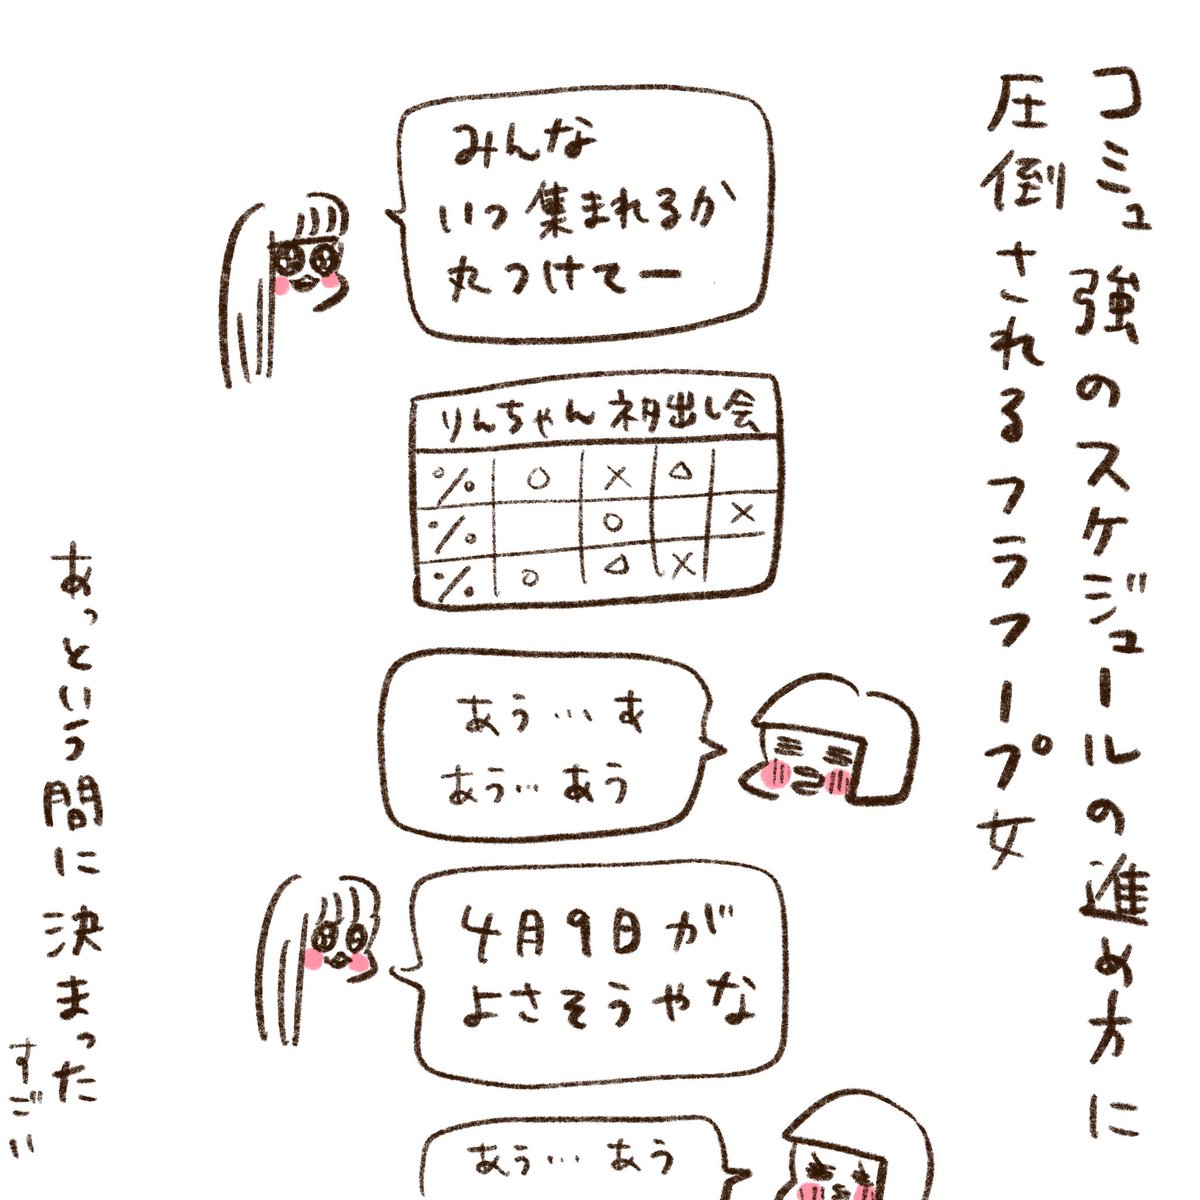 コミュ強のスケジュールの進め方に
圧倒されるフラフープ女
みんな
いつ集まれるか
丸つけてー
りんちゃんネタ出し会
% ○ × △
% ○ ×
% ○ △ ×
あう…あ
あう…あう
4月9日が
よさそうやな
あう…あう
あっという間に決まった
すごい